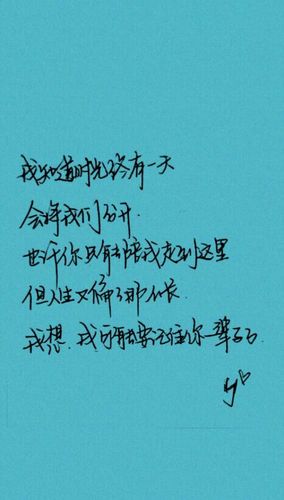 我知道时光终有一天
会将我们分开.
也许你只能陪我走到这里
但人生又偏偏那么长
我想.我可能要记住你一辈子了.
y♡